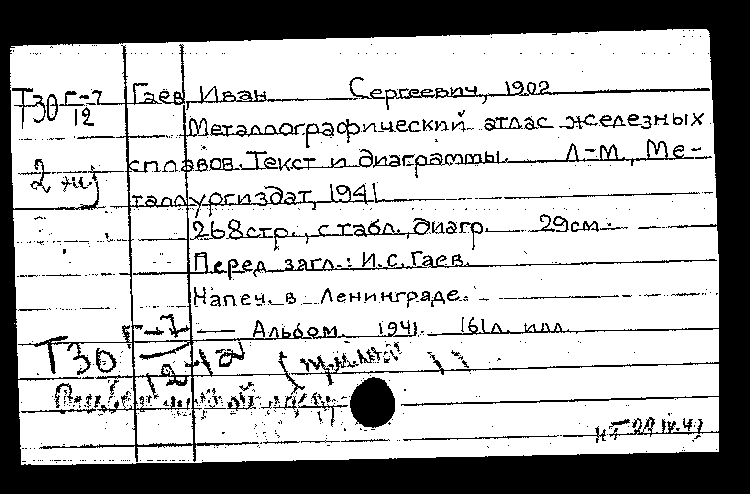 Т30 Г-7/12
Гаев, Иван Сергеевич, 1902
Металлографический атлас железных
2 экз
сплавов. Текст и диаграммы. Л-М., Ме-
таллургиздат, 1941.
268стр., с табл., диагр. 29см.
Перед загл.: И.С. Гаев.
Напеч. в Ленинграде.
— Альбом. 1941. 161л. илл.
Т30 Г-7/12-12